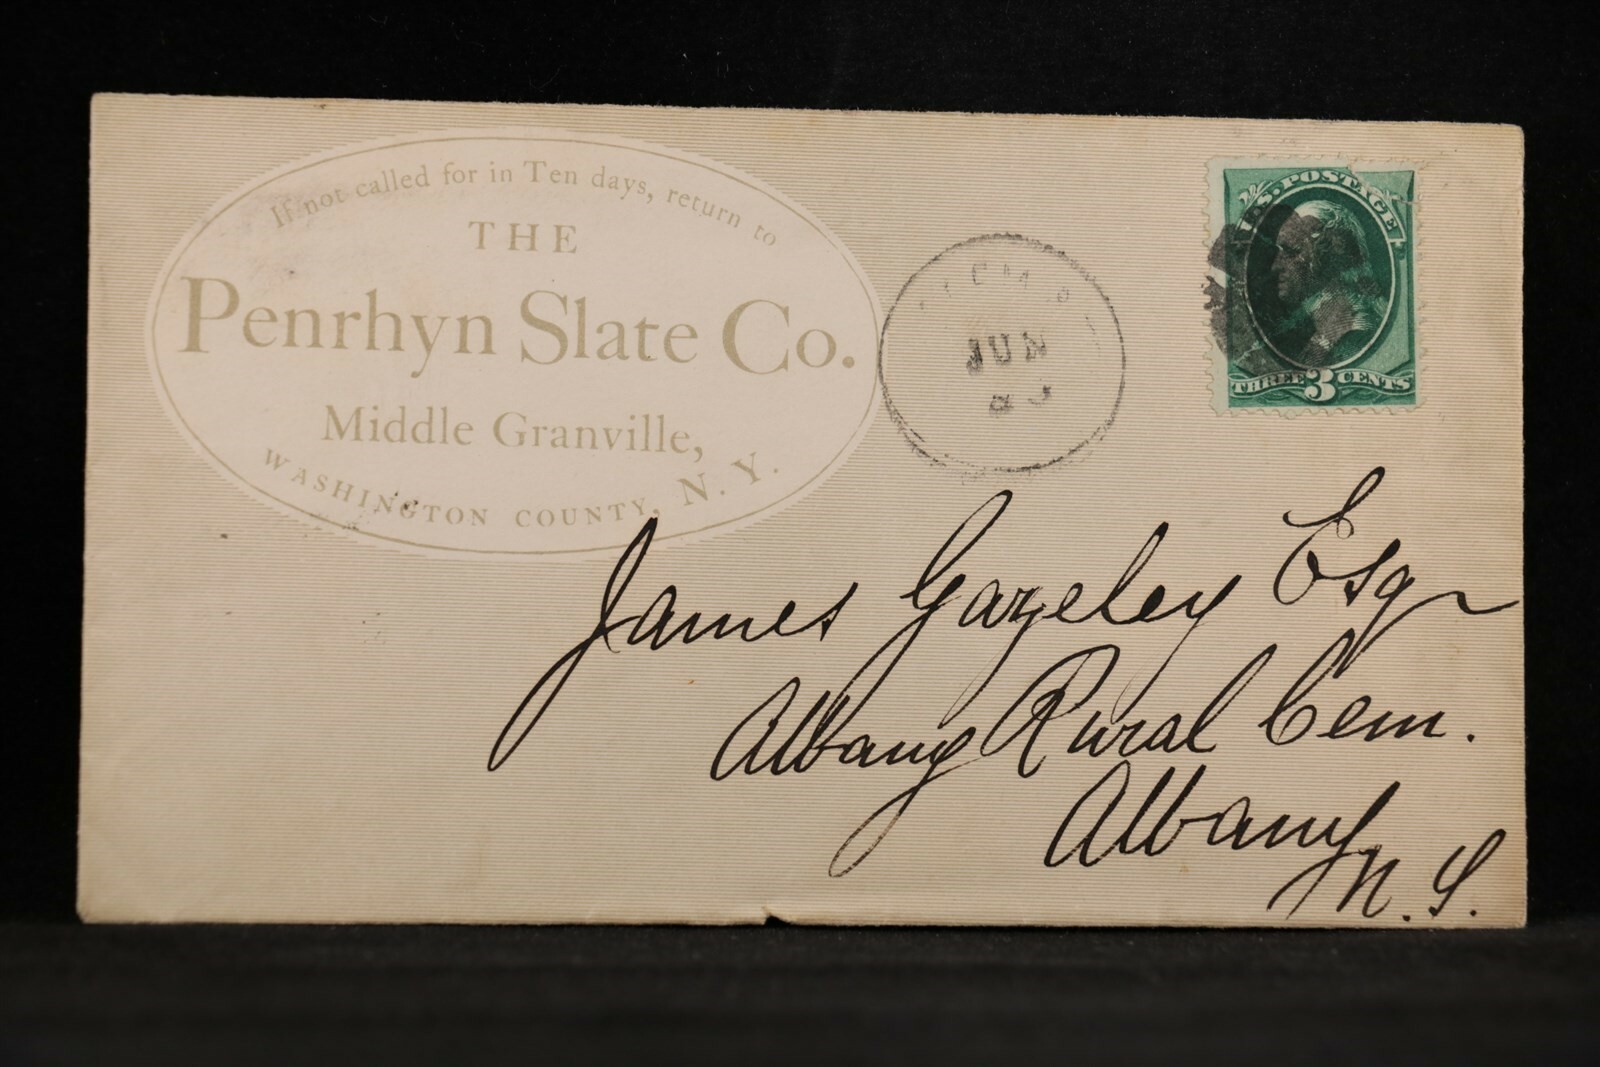 If not called for in Ten days, return to
THE
Penrhyn Slate Co.
Middle Granville,
WASHINGTON COUNTY, N. Y.
JUN
U.S. POSTAGE
THREE 3 CENTS
James Gazeley Esq
Albany Rural Cem.
Albany
N. Y.